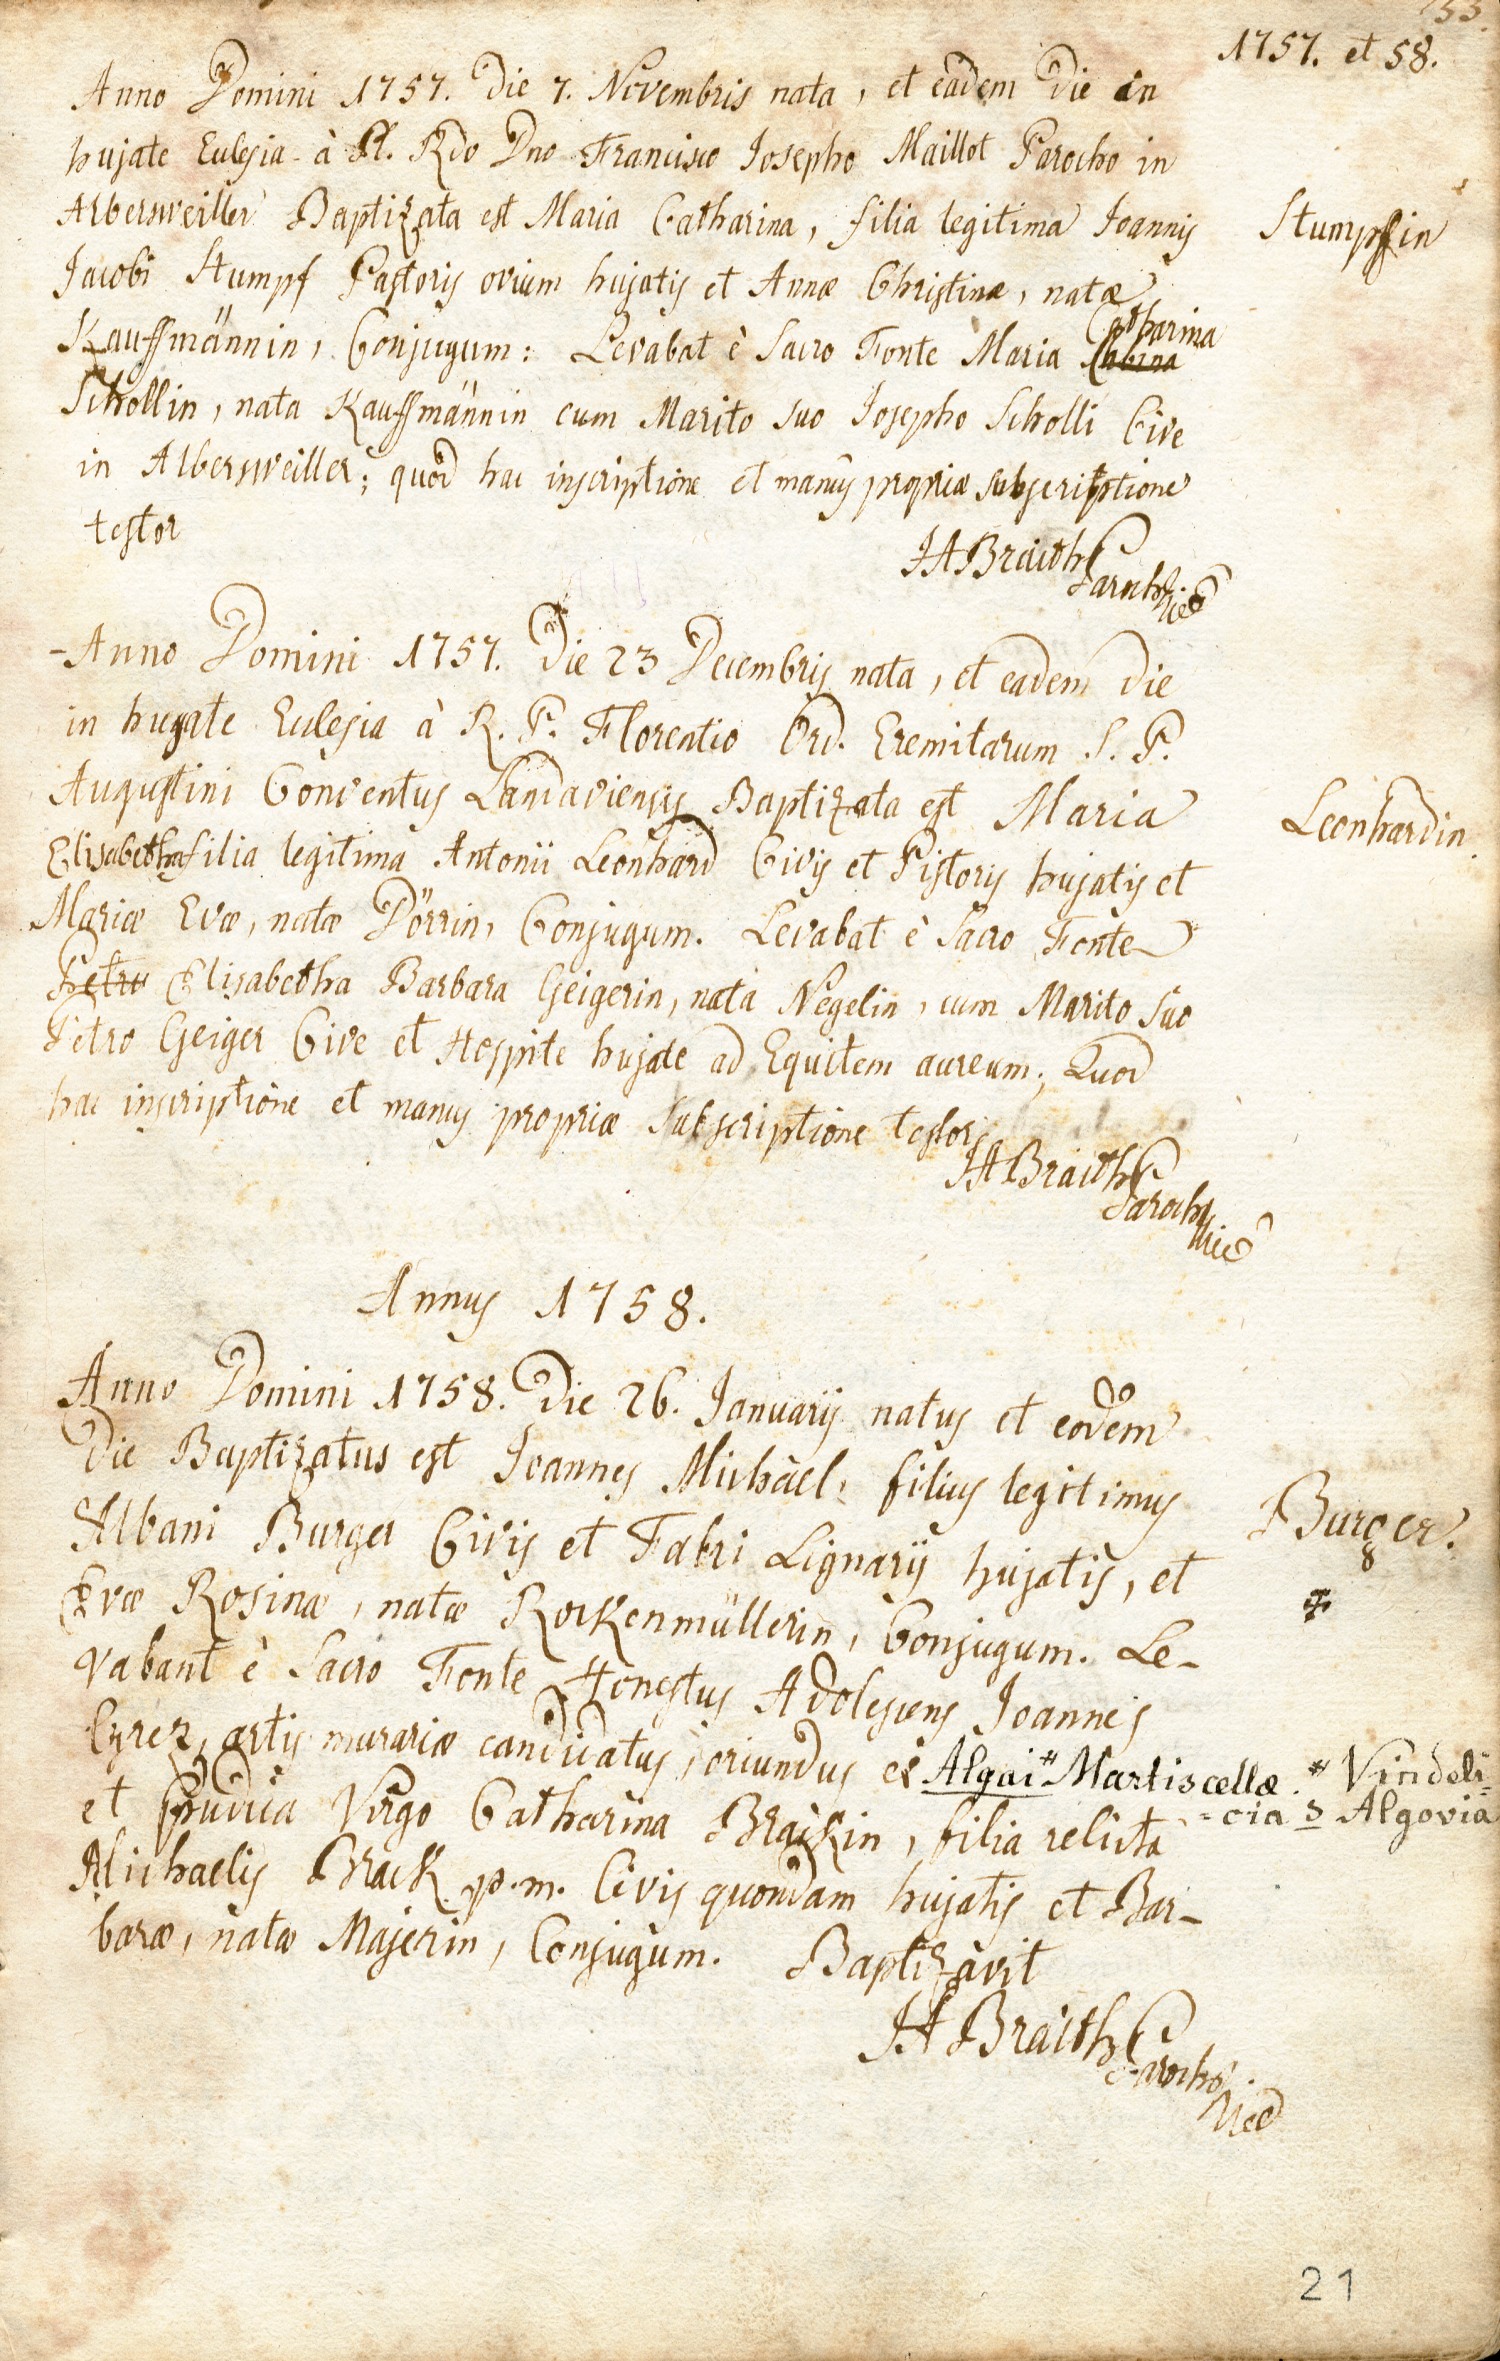 33.
1757. et 58.
Anno Domini 1757. Die 7. Novembris nata, et eâdem Die in
hujate Eclesia à Pl. Rdo Dno Francisco Iosepho Maillot Parocho in
Arbersweiller Baptizata est Maria Catharina, filia legitima Ioannis
Stumpfin
Iacobi Stumpf Pastoris ovium hujatis et Annæ Christinæ, natæ
Catharina
Kauffmännin, Conjugum: Levabat è Sacro Fonte Maria
Schollin, nata Kauffmännin cum Marito suo Iosepho Scholli Cive
in Albersweiller; quòd hac inscriptione et manûs propriæ subscriptione
testor
JABraith
Parochus
Anno Domini 1757. Die 23 Decembris nata, et eadem Die
in hujate Eclesia à R. P. Florentio Ord. Eremitarum S. P.
Augustini Conventus Landaviensis Baptizata est Maria
Leonhardin.
Elisabetha filia legitima Antonii Leonhard Civis et Pistoris hujatis et
Mariæ Evæ, natæ Dörrin, Conjugum. Levabat è Sacro Fonte
Petro Elisabetha Barbara Geigerin, nata Negelin, cum Marito suo
Petro Geiger Cive et Hospite hujate ad Equitem aureum; Quod
hac inscriptione et manus propriæ subscriptione testor
JABraith
Parochus
Annus 1758.
Anno Domini 1758. Die 26. Ianuarij natus et eodem
Die Baptizatus est Ioannes Michael, filius legitimus
Albani Burger Civis et Fabri Lignarij hujatis, et
Burger.
Evæ Rosinæ, natæ Rockenmüllerin, Conjugum. Le-
vabant è Sacro Fonte Honestus Adolescens Ioannes
artis murariæ candidatus, oriundus ex Algai * Martiscellæ. * Vindeli=
=cia s Algovia
et pudica Virgo Catharina Brackin, filia relicta
Michaelis Brack p.m. Civis quondam hujatis et Bar-
baræ, natæ Majerin, Conjugum. Baptizavit
JABraith
Parochus
21